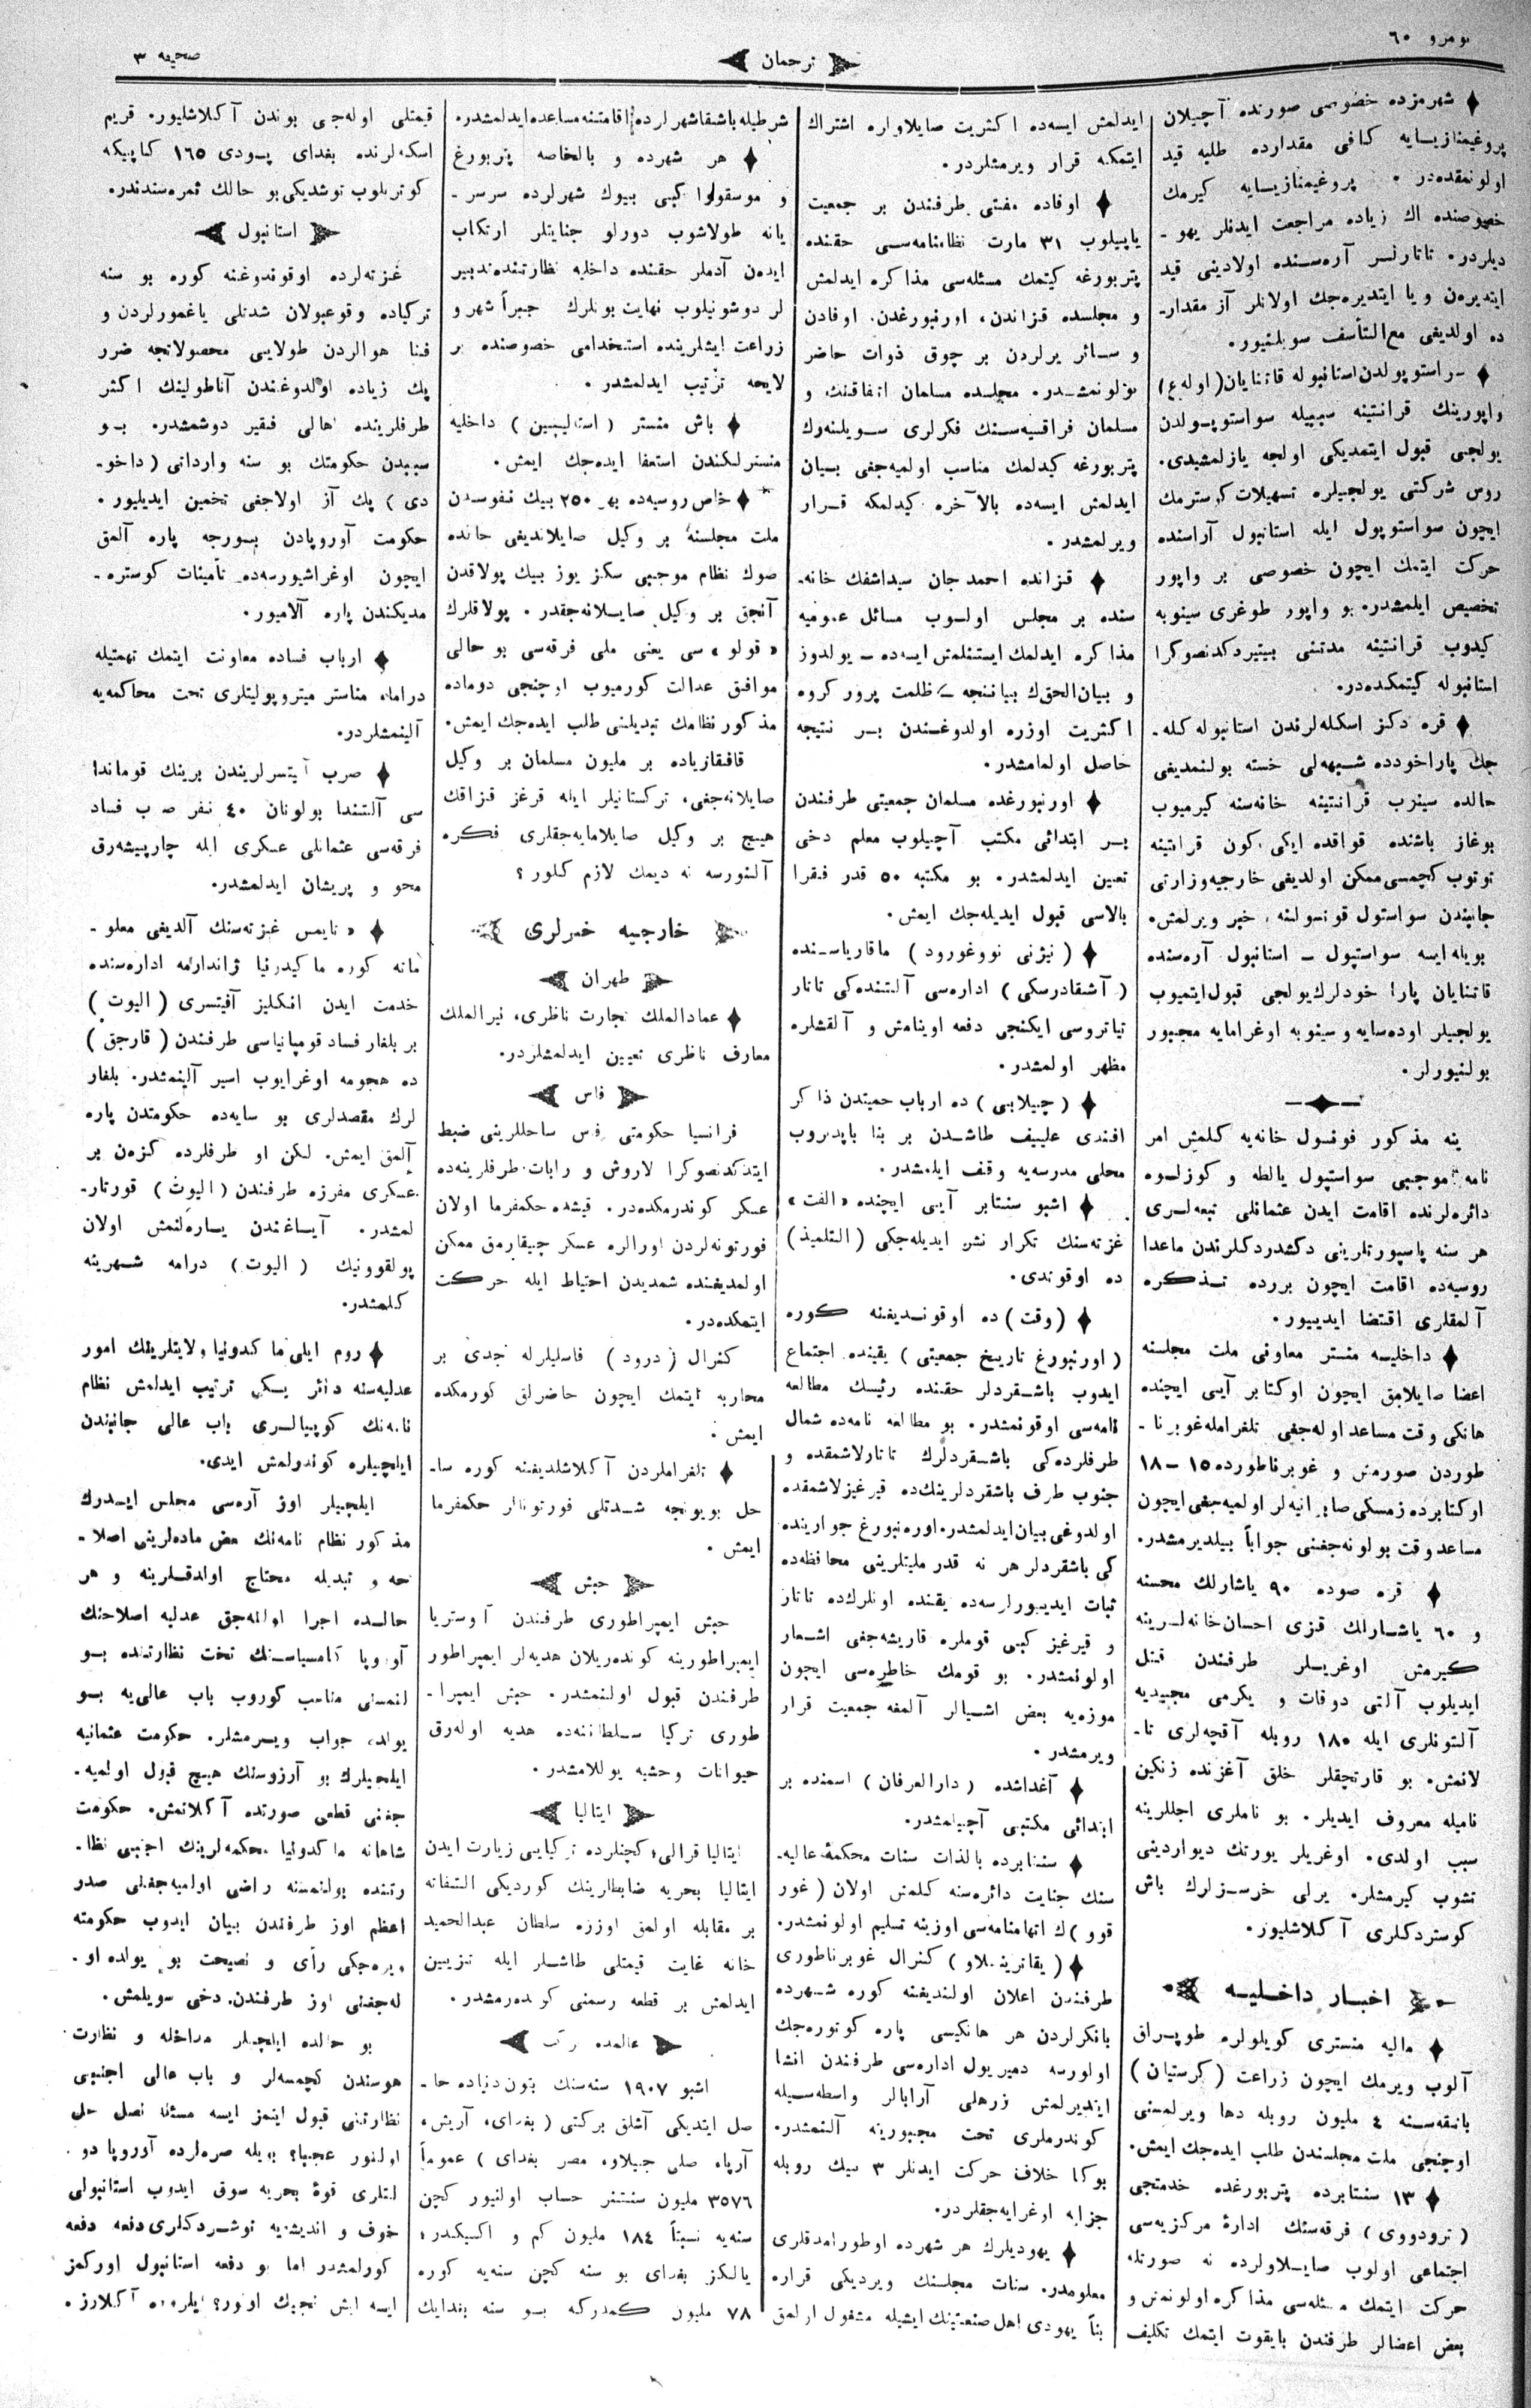 نومرو ٦٠
ترجمان
صحیفه ٣
شهرمزده خصوصی صورتده آچیلان
پروغیمنازیایه کافی مقدارده طلبه قید
اولونمقده‌در. پروغیمنازیایه کیرمك
خصوصنده اك زیاده مراجعت ایدنلر یهو-
دیلردر. تاتارلر آره‌سنده اولادینی قید
ایتدیره‌ن و یا ایتدیره‌جك اولانلر آز مقدار-
ده اولدیغی مع التأسف سویلنیور.
سواستوپولدن استانبوله قاتنایان (اوله‌غ)
واپورینك قرانتینه سببیله سواستوپولدن
یولجی قبول ایتمدیکی اولجه یازلمشیدی.
روس شرکتی یولجیلره تسهیلات کوسترمك
ایچون سواستوپول ایله استانبول آراسنده
حرکت ایتمك ایچون خصوصی بر واپور
تخصیص ایلمشدر. بو واپور طوغری سینوبه
کیدوب قرانتینه مدتنی بیتیردکدنصوکرا
استانبوله کیتمکده‌در.
قره دکز اسکله‌لرندن استانبوله کله-
جك پاراخودده شبهه‌لی خسته بولنمدیغی
حالده سینوب قرانتینه خانه‌سنه کیرمیوب
بوغاز باشنده قواقده ایکی کون قرانتینه
توتوب کچمسی ممکن اولدیغی خارجیه وزارتی
جانبندن سواستول قونسولنه خبر ویرلمش.
بویله ایسه سواستپول – استانبول آره‌سنده
قاتنایان پاراخودلرك یولجی قبول ایتمیوب
یولجیلر اوده‌سایه و سینوبه اوغرامایه مجبور
بولنیورلر.
ینه مذکور قونسول خانه‌یه کلمش امر
نامه موجبی سواستپول یالطه و کوزلوه
دائره‌لرنده اقامت ایدن عثمانلی تبعه‌لری
هر سنه پاسپورتلرینی دکشدردکلرندن ماعدا
روسیه‌ده اقامت ایچون بررده تذکره
آلمقلری اقتضا ایدییور.
داخلیه منستر معاونی ملت مجلسنه
اعضا صایلامق ایچون اوکتابر آیی ایچنده
هانکی وقت مساعد اوله‌جغی تلغرامله غوبرنا-
طوردن صورمش و غوبرناطورده ١٥–١٨
اوکتابرده زمسکی صابرانیه‌لر اولمیه‌جغی ایچون
مساعد وقت بولونه‌جغنی جواباً بیلدیرمشدر.
قره صوده ٩٠ یاشارلك محسنه
و ٦٠ یاشارلك قزی احسان خانه‌لرینه
کیرمش اوغریلر طرفندن قتل
ایدیلوب آلتی دوقات و یکرمی مجیدیه
آلتونلری ایله ١٨٠ روبله آقچه‌لری تا-
لانمش. بو قارتچقلر خلق آغزنده زنکین
نامیله معروف ایدیلر. بو ناملری اجللرینه
سبب اولدی. اوغریلر یورتك دیواردینی
تشوب کیرمشلر. یرلی خرسزلرك باش
کوستردکلری آکلاشلیور.
اخبار داخلیه
مالیه منستری کویلولره طوپراق
آلوب ویرمك ایچون زراعت (کرستیان)
بانقه‌سنه ٤ ملیون روبله دها ویرلمسنی
اوجنجی ملت مجلسندن طلب ایده‌جك ایمش.
١٣ سنتابرده پتربورغده خدمتجی
(ترودووی) فرقه‌سنك ادارهٔ مرکزیه‌سی
اجتماعی اولوب صایلاولرده نه صورتله
حرکت ایتمك مسئله‌سی مذاکره اولونمش و
بعض اعضالر طرفندن بایقوت ایتمك تکلیف
ایدلمش ایسه‌ده اکثریت صایلاواره اشتراك
ایتمکه قرار ویرمشلردر.
اوفاده مفتی طرفندن بر جمعیت
یاپیلوب ٣١ مارت نظامنامه‌سی حقنده
پتربورغه کیتمك مسئله‌سی مذاکره ایدلمش
و مجلسده قزاندن، اورنبورغدن، اوفادن
و سائر یرلردن بر چوق ذوات حاضر
بولونمشدر. مجلسده مسلمان اتفاقنك و
مسلمان فراقسیه‌سنك فکرلری سویلنه‌رك
پتربورغه کیدلمك مناسب اولمیه‌جغی بیان
ایدلمش ایسه‌ده بالآخره کیدلمکه قرار
ویرلمشدر.
قزانده احمدجان سیداشفك خانه-
سنده بر مجلس اولوب مسائل عمومیه
مذاکره ایدلمك ایستنلمش ایسه‌ده – یولدوز
و بیان الحق‌ك بیاننجه – ظلمت پرور کروه
اکثریت اوزره اولدوغندن بر نتیجه
حاصل اولمامشدر.
اورنبورغده مسلمان جمعیتی طرفندن
بر ابتدائی مکتب آچیلوب معلم دخی
تعیین ایدلمشدر. بو مکتبه ٥٠ قدر فقرا
بالاسی قبول ایدیله‌جك ایمش.
(نیژنی نووغورود) ماقاریاسنده
(آشقادرسکی) اداره‌سی آلتنده‌کی تاتار
تیاتروسی ایکنجی دفعه اوینامش و آلقشلره
مظهر اولمشدر.
(چیلابی) ده ارباب حمیتدن ذاکر
افندی علییف طاشدن بر بنا یاپدروب
محلی مدرسه‌یه وقف ایلمشدر.
اشبو سنتابر آیی ایچنده «الفت»
غزته‌سنك تکرار نشر ایدیله‌جکی (التلمیذ)
ده اوقوندی.
(وقت) ده اوقوندیغنه کوره
(اورنبورغ تاریخ جمعیتی) یقینده اجتماع
ایدوب باشقردلر حقنده رئیسك مطالعه
نامه‌سی اوقونمشدر. بو مطالعه نامه‌ده شمال
طرفلرده‌کی باشقردلرك تاتارلاشمقده و
جنوب طرف باشقردلرینك‌ده قیرغیزلاشمقده
اولدوغی بیان ایدلمشدر. اوره‌نبورغ جوارینده
کی باشقردلر هر نه قدر ملیتلرینی محافظه‌ده
ثبات ایدییورلرسه‌ده یقنده اونلرك‌ده تاتار
و قیرغیز کبی قوملره قاریشه‌جغی اشعار
اولونمشدر. بو قومك خاطره‌سی ایچون
موزه‌یه بعض اشیالر آلمغه جمعیت قرار
ویرمشدر.
آغداشده (دارالعرفان) اسمنده بر
ابتدائی مکتبی آچیلمشدر.
سنتابرده بالذات سنات محکمهٔ عالیه-
سنك جنایت دائره‌سنه کلمش اولان (غور
قوو)ك اتهامنامه‌سی اوزینه تسلیم اولونمشدر.
(یقاترینوسلاو) کنرال غوبرناطوری
طرفندن اعلان اولندیغنه کوره شهرده
بانکرلردن هر هانکیسی پاره کوتوره‌جك
اولورسه دمیریول اداره‌سی طرفندن انشا
ایتدیرلمش زرهلی آرابالر واسطه‌سیله
کوندرملری تحت مجبوریته آلنمشدر.
بوکا خلاف حرکت ایدنلر ٣ بیك روبله
جزایه اوغرایه‌جقلردر.
یهودیلرك هر شهرده اوطورامدقلری
معلومدر. سنات مجلسنك ویردیکی قراره
بناً یهودی اهل صنعتینك ایشیله مشغول اولمق
شرطیله باشقا شهرلرده اقامتنه مساعده ایدلمشدر.
هر شهرده و بالخاصه پتربورغ
و موسقووا کبی بیوك شهرلرده سرسر-
یانه طولاشوب دورلو جنایتلر ارتکاب
ایده‌ن آدملر حقنده داخلیه نظارتنده تدبیر
لر دوشونیلوب نهایت بونلرك جبراً شهر و
زراعت ایشلرینده استخدامی خصوصنده بر
لایحه ترتیب ایدلمشدر.
باش منستر (استالیپین) داخلیه
منسترلکندن استعفا ایده‌جك ایمش.
خاص روسیه‌ده بهر ٢٥٠ بیك نفوسدن
ملت مجلسنه بر وکیل صایلاندیغی حالده
صوك نظام موجبی سکز یوز بیك پولاقدن
آنجق بر وکیل صایلانه‌جقدر. پولاقلرك
«قولو» سی یعنی ملی فرقه‌سی بو حالی
موافق عدالت کورمیوب اوچنجی دوماده
مذکور نظامك تبدیلنی طلب ایده‌جك ایمش.
قافقازیاده بر ملیون مسلمان بر وکیل
صایلانه‌جغی، ترکستانیلر ایله قرغز قزاقك
هیچ بر وکیل صایلامایه‌جقلری فکره
آلنورسه نه دیمك لازم کلور؟
خارجیه خبرلری
طهران
عمادالملك تجارت ناظری، نیرالملك
معارف ناظری تعیین ایدلمشلردر.
فاس
فرانسیا حکومتی فاس ساحللرینی ضبط
ایتدکدنصوکرا لاروش و رابات طرفلرینه‌ده
عسکر کوندرمکده‌در. قیشده حکمفرما اولان
فورتونه‌لردن اورالره عسکر چیقارمق ممکن
اولمدیغنده شمدیدن احتیاط ایله حرکت
ایتمکده‌در.
کنرال (درود) فاسلیلرله جدی بر
محاربه ایتمك ایچون حاضرلق کورمکده
ایمش.
تلغراملردن آکلاشلدیغنه کوره سا-
حل بویونجه شدتلی فورتونالر حکمفرما
ایمش.
حبش
حبش ایمپراطوری طرفندن آوستریا
ایمپراطورینه کونده‌ریلان هدیه‌لر ایمپراطور
طرفندن قبول اولنمشدر. حبش ایمپرا-
طوری ترکیا سلطاننه‌ده هدیه اوله‌رق
حیوانات وحشیه یوللامشدر.
ایتالیا
ایتالیا قرالی، کچنلرده ترکیایی زیارت ایدن
ایتالیا بحریه ضابطلرینك کوردیکی التفاته
بر مقابله اولمق اوزره سلطان عبدالحمید
خانه غایت قیمتلی طاشلر ایله تزیین
ایدلمش بر قطعه رسمنی کونده‌رمشدر.
عالمده
اشبو ١٩٠٧ سنه‌سنك بتون دنیاده حا-
صل ایتدیکی آشلق برکتی (بغدای، آریش،
آرپا، صلی جیلاو، مصر بغدای) عموماً
٣٥٧٦ ملیون سنتنر حساب اولنیور کچن
سنه‌یه نسبتاً ١٨٤ ملیون کم و اکسیکدر؛
یالکز بغدای بو سنه کچن سنه‌یه کوره
٧٨ ملیون کمدرکه بو سنه بغدایك
قیمتلی اوله‌جی بوندن آکلاشلیور. قریم
اسکه‌لرنده بغدای پودی ١٦٥ کاپیکه
کوتریلوب توشدیکی بو حالك ثمره‌سندندر.
استانبول
غزته‌لرده اوقوندوغنه کوره بو سنه
ترکیاده وقوعبولان شدتلی یاغمورلردن و
فنا هوالردن طولایی محصولاتجه ضرر
پك زیاده اولدوغندن آناطولینك اکثر
طرفلرینده اهالی فقیر دوشمشدر. بو
سببدن حکومتك بو سنه وارداتی (داخو-
دی) پك آز اولاجغی تخمین ایدیلیور.
حکومت آوروپادن بورجه پاره آلمق
ایچون اوغراشیورسه‌ده تأمینات کوستره-
مدیکندن پاره آلامیور.
ارباب فساده معاونت ایتمك تهمتیله
دراما، مناستر میتروپولیتلری تحت محاکمه‌یه
آلینمشلردر.
صرب آفیتسرلریندن برینك قوماندا
سی آلتندا بولونان ٤٠ نفر صرب فساد
فرقه‌سی عثمانلی عسکری ایله چارپیشه‌رق
محو و پریشان ایدلمشدر.
«تایمس غزته‌سنك آلدیغی معلو-
ماته کوره ماکیدونیا ژاندارمه اداره‌سنده
خدمت ایدن انکلیز آفیتسری (الیوت)
بر بلغار فساد قومپانیاسی طرفندن (قارجق)
ده هجومه اوغرایوب اسیر آلینمشدر. بلغار
لرك مقصدلری بو سایه‌ده حکومتدن پاره
آلمق ایمش. لکن او طرفلرده کزه‌ن بر
عسکری مفرزه طرفندن (الیوث) قورتار-
لمشدر. آیاغندن یاره‌لنمش اولان
پولقوونیك (الیوت) درامه شهرینه
کلمشدر.
روم ایلی ماکدونیا ولایتلرینك امور
عدلیه‌سنه دائر یکی ترتیب ایدلمش نظام
نامه‌نك کوپیالری باب عالی جانبندن
ایلچیلره کوندرلمش ایدی.
ایلچیلر اوز آره‌سی مجلس ایدرك
مذکور نظام نامه‌نك بعض ماده‌لرینی اصلا-
حه و تبدیله محتاج اولدقلرینه و هر
حالده اجرا اولنه‌جق عدلیه اصلاحنك
آوروپا کامسیاسنك تحت نظارتنده بو
لنمسنی مناسب کوروب باب عالی‌یه بو
یولده جواب ویرمشلر. حکومت عثمانیه
ایلچیلرك بو آرزوسنك هیچ قبول اولمیه-
جغنی قطعی صورتده آکلاتمش. حکومت
شاهانه ماکدونیا محکمه‌لرینك اجنبی نظا-
رتنده بولنمسنه راضی اولمیه‌جغنی صدر
اعظم اوز طرفندن بیان ایدوب حکومته
ویره‌جکی رأی و نصیحت بو یولده او-
له‌جغنی اوز طرفندن دخی سویلمش.
بو حالده ایلچیلر مداخله و نظارت
هوسندن کچمسه‌لر و باب عالی اجنبی
نظارتنی قبول ایتمز ایسه مسئله نصل حل
اولنور عجبا؟ بویله صره‌لرده آوروپا دو-
لتلری قوهٔ بحریه سوق ایدوب استانبولی
خوف و اندیشه‌یه توشردکلری دفعه دفعه
کورلمشدر اما بو دفعه استانبول اورکمز
ایسه ایش نجیك اولور؟ آکلارز.